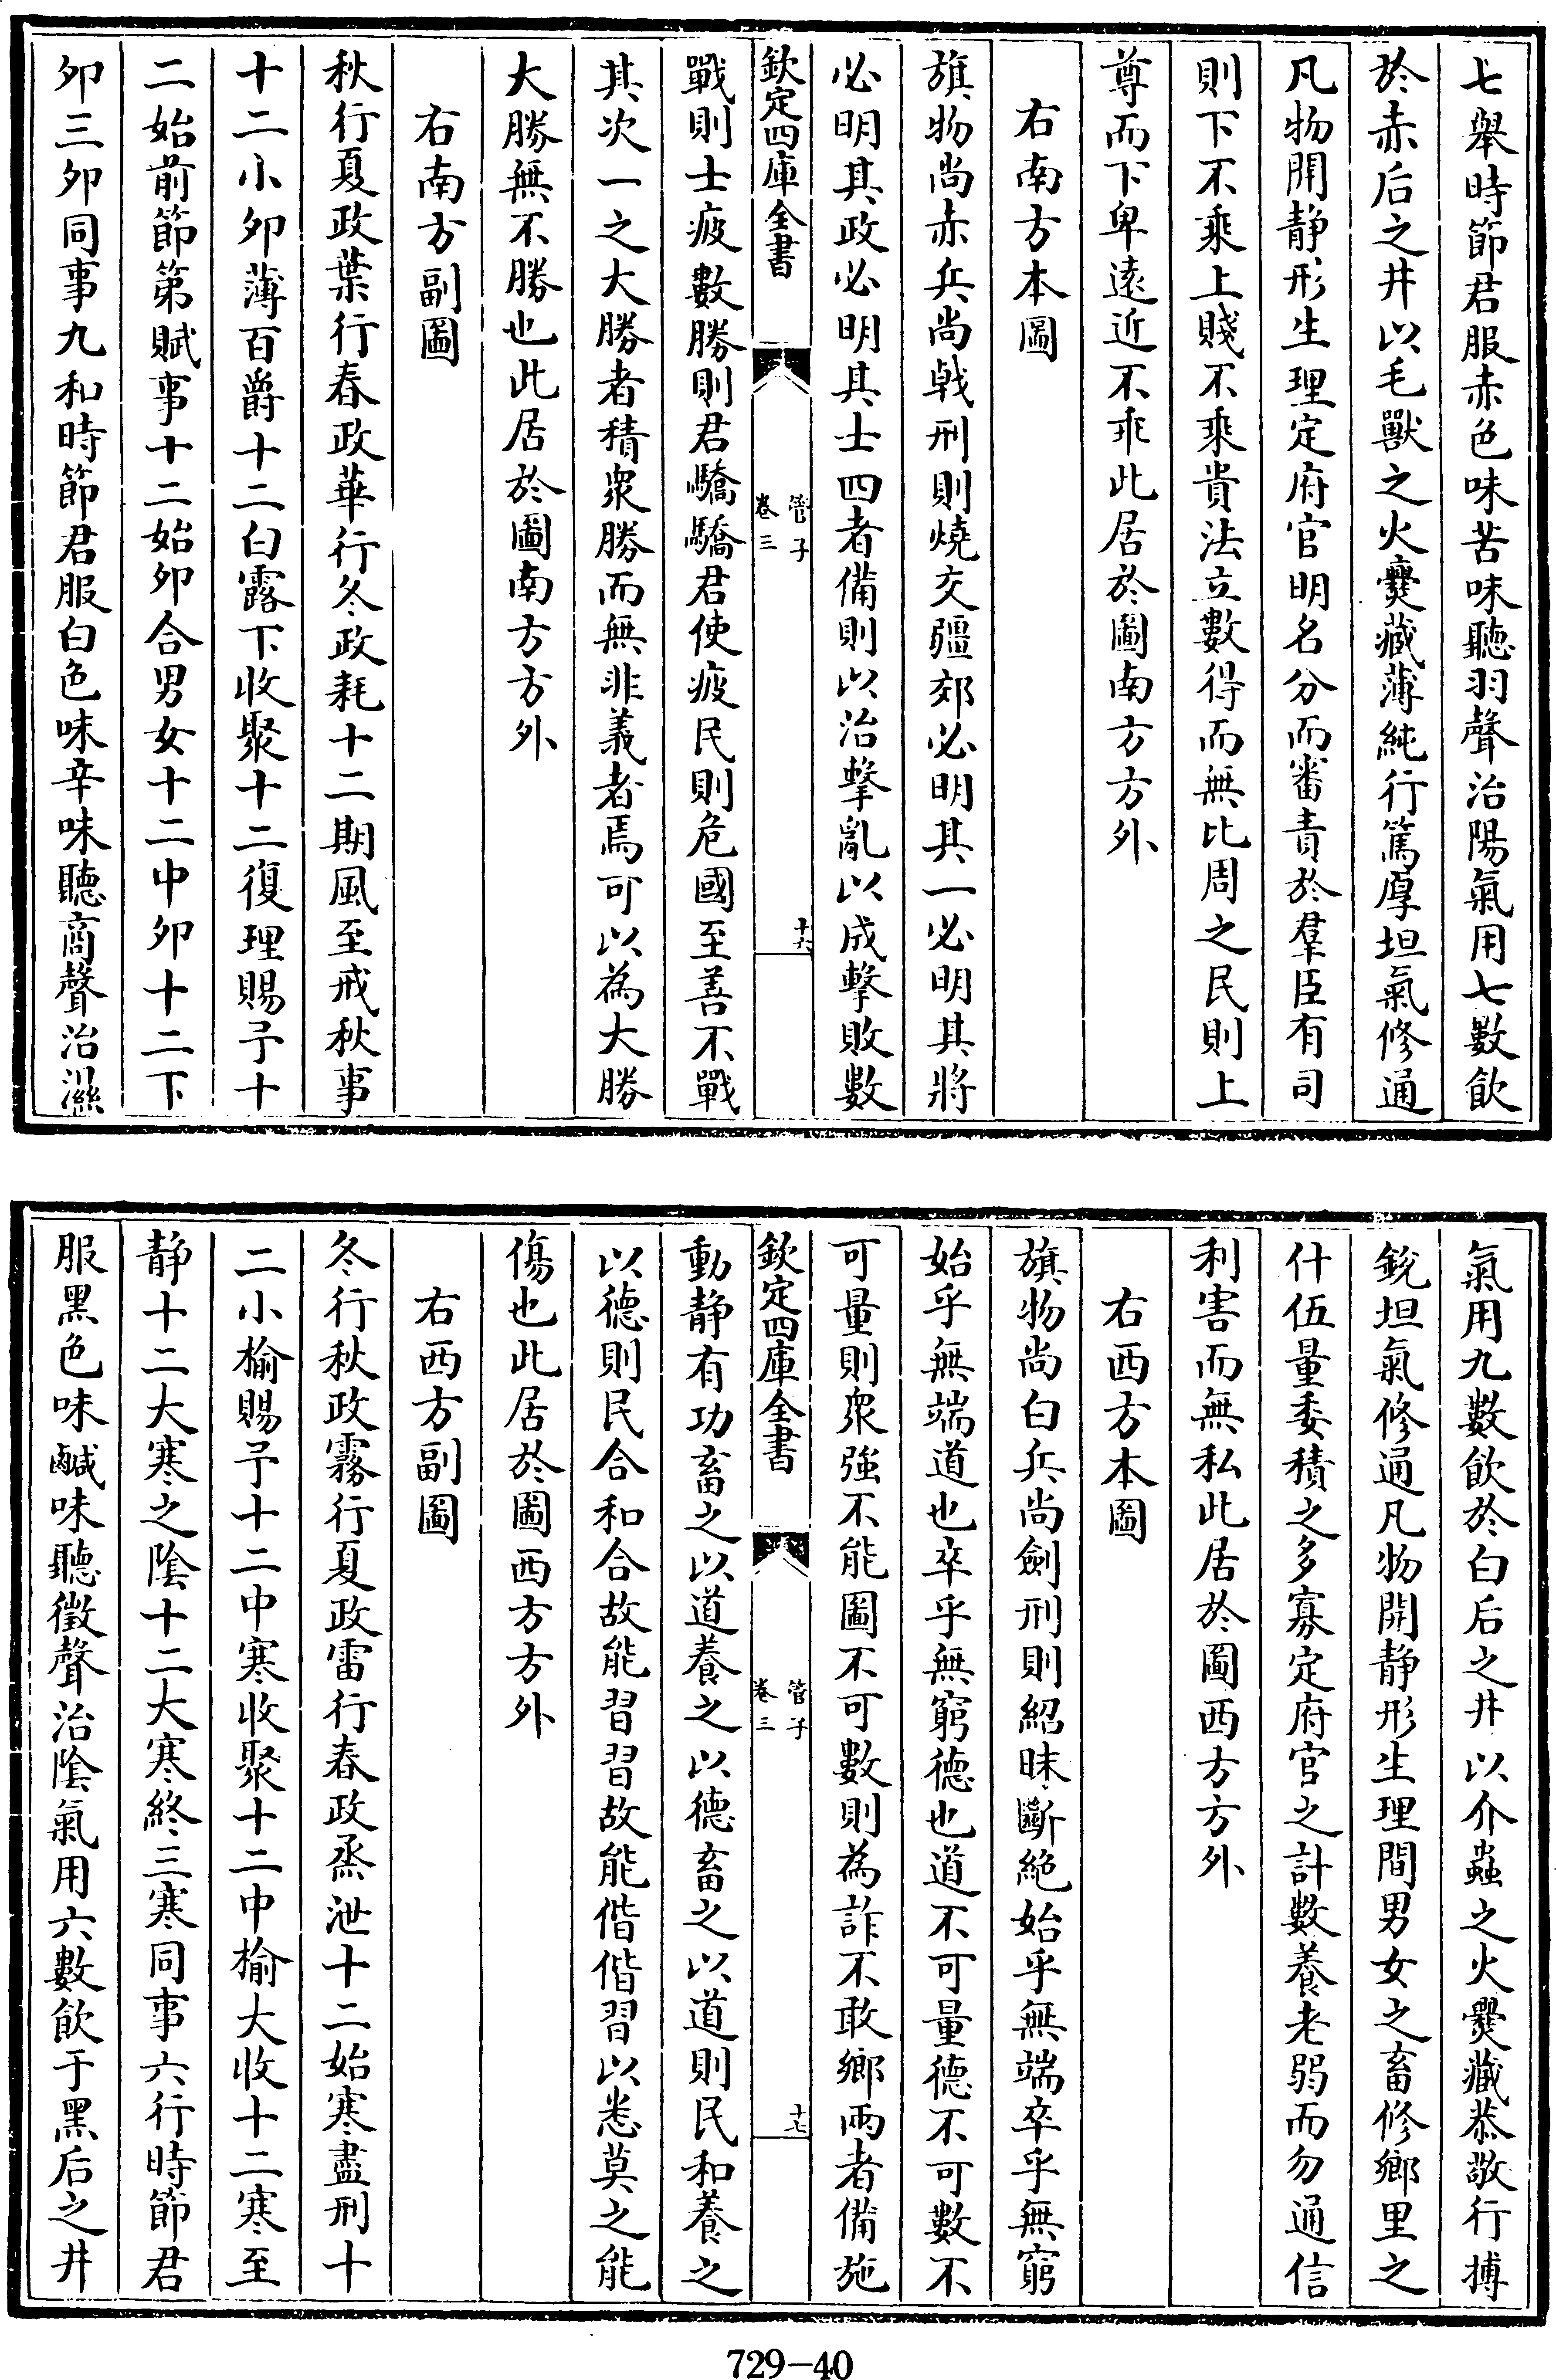 七舉時節君服赤色味苦味聽羽聲治陽氣用七數飲
於赤后之井以毛獸之火爨藏薄純行篤厚坦氣修通
凡物開静形生理定府官明名分而審責於羣臣有司
則下不乘上賤不乘貴法立數得而無比周之民則上
尊而下卑遠近不乖此居於圖南方方外
右南方本圖
旗物尚赤兵尚㦸刑則燒交疆郊必明其一必明其將
必明其政必明其士四者備則以治擊亂以成擊敗數
欽定四庫全書
管子
卷三
十六
戰則士疲數勝則君驕驕君使疲民則危國至善不戰
其次一之大勝者積衆勝而無非義者焉可以為大勝
大勝無不勝也此居於圖南方方外
右南方副圖
秋行夏政葉行春政華行冬政耗十二期風至戒秋事
十二小夘薄百爵十二白露下收聚十二復理賜予十
二始前節第賦事十二始夘合男女十二中夘十二下
夘三夘同事九和時節君服白色味辛味聽商聲治濕
氣用九數飲於白后之井以介蟲之火爨藏恭敬行搏
鋭坦氣修通凡物開静形生理間男女之畜修鄉里之
什伍量委積之多寡定府官之計數養老弱而勿通信
利害而無私此居於圖西方方外
右西方本圖
旗物尚白兵尚劍刑則紹昧斷絶始乎無端卒乎無窮
始乎無端道也卒乎無窮德也道不可量德不可數不
可量則衆強不能圖不可數則為詐不敢鄉兩者備施
欽定四庫全書
管子
卷三
十七
動静有功畜之以道養之以德畜之以道則民和養之
以德則民合和合故能習習故能偕偕習以悉莫之能
傷也此居於圖西方方外
右西方副圖
冬行秋政霧行夏政雷行春政烝泄十二始寒盡刑十
二小榆賜予十二中寒收聚十二中榆大收十二寒至
静十二大寒之陰十二大寒終三寒同事六行時節君
服黑色味鹹味聽徵聲治陰氣用六數飲于黑后之井
729-40